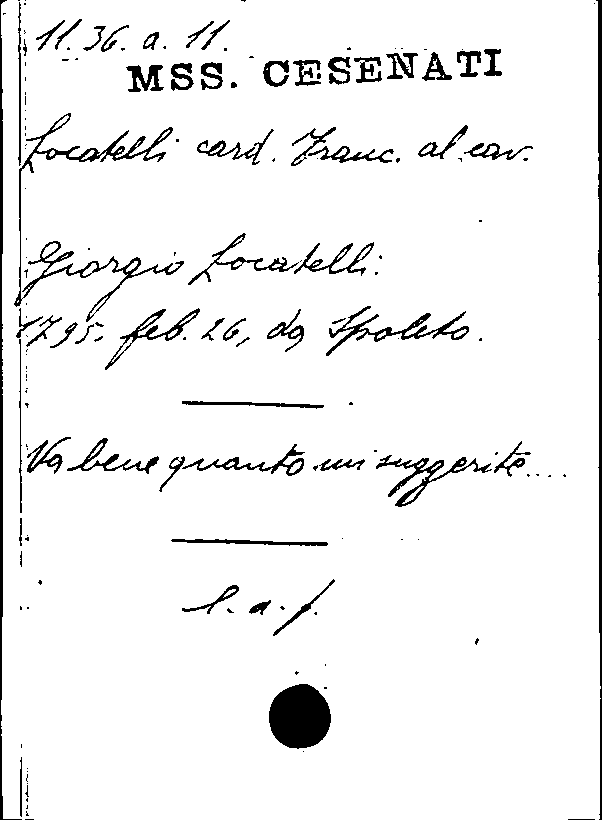 11. 36. a. 11.
MSS. CESENATI
Locatelli card. Franc. al cav.
Giorgio Locatelli.
1795. feb. 26, da Spoleto.
Va bene quanto mi suggerite....
l. a. f.